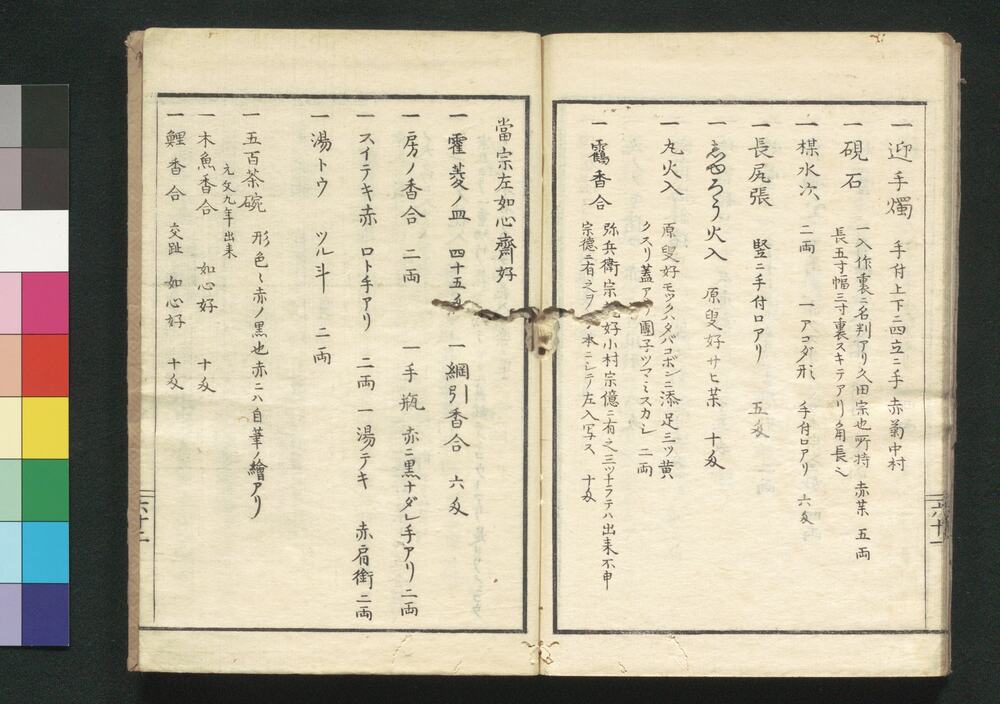 一 迎手燭 手付上下ニ四立ニ手 赤菊中村
一 硯石 一入作裏ニ名判アリ久田宗也所持 赤茶 五両
長五寸幅三寸裏スキテアリ角長シ
一 楳水次 二両 一 アコダ形 手付口アリ 六匁
一 長尻張 竪ニ手付口アリ 五匁
一 火入 原叟好サヒ茶 十匁
一 丸火入 原叟好モツクハタバコボンニ添足三ツ黄
クスリ蓋アリ團子ツマミスカし 二両
一 鶴香合 弥兵衛宗 好小村宗億ニ有之三ツナラテハ出来不申
宗徳ニ有之ヲ 本ニシテ左入写ス 十匁
六十一
當宗左如心齋好
一 霍菱ノ皿 四十五匁 一 綱引香合 六匁
一 房ノ香合 二両 一 手瓶 赤ニ黒ナダレ手アリ 二両
一 スイテキ赤 口ト手アリ 二両 一 湯テキ 赤肩衝 二両
一 湯トウ ツル斗 二両
一 五百茶碗 形色々赤ノ黒也赤ニハ自筆ノ繪アリ
元文九年出来
一 木魚香合 如心好 十匁
一 鯉香合 交趾 如心好 十匁
六十二